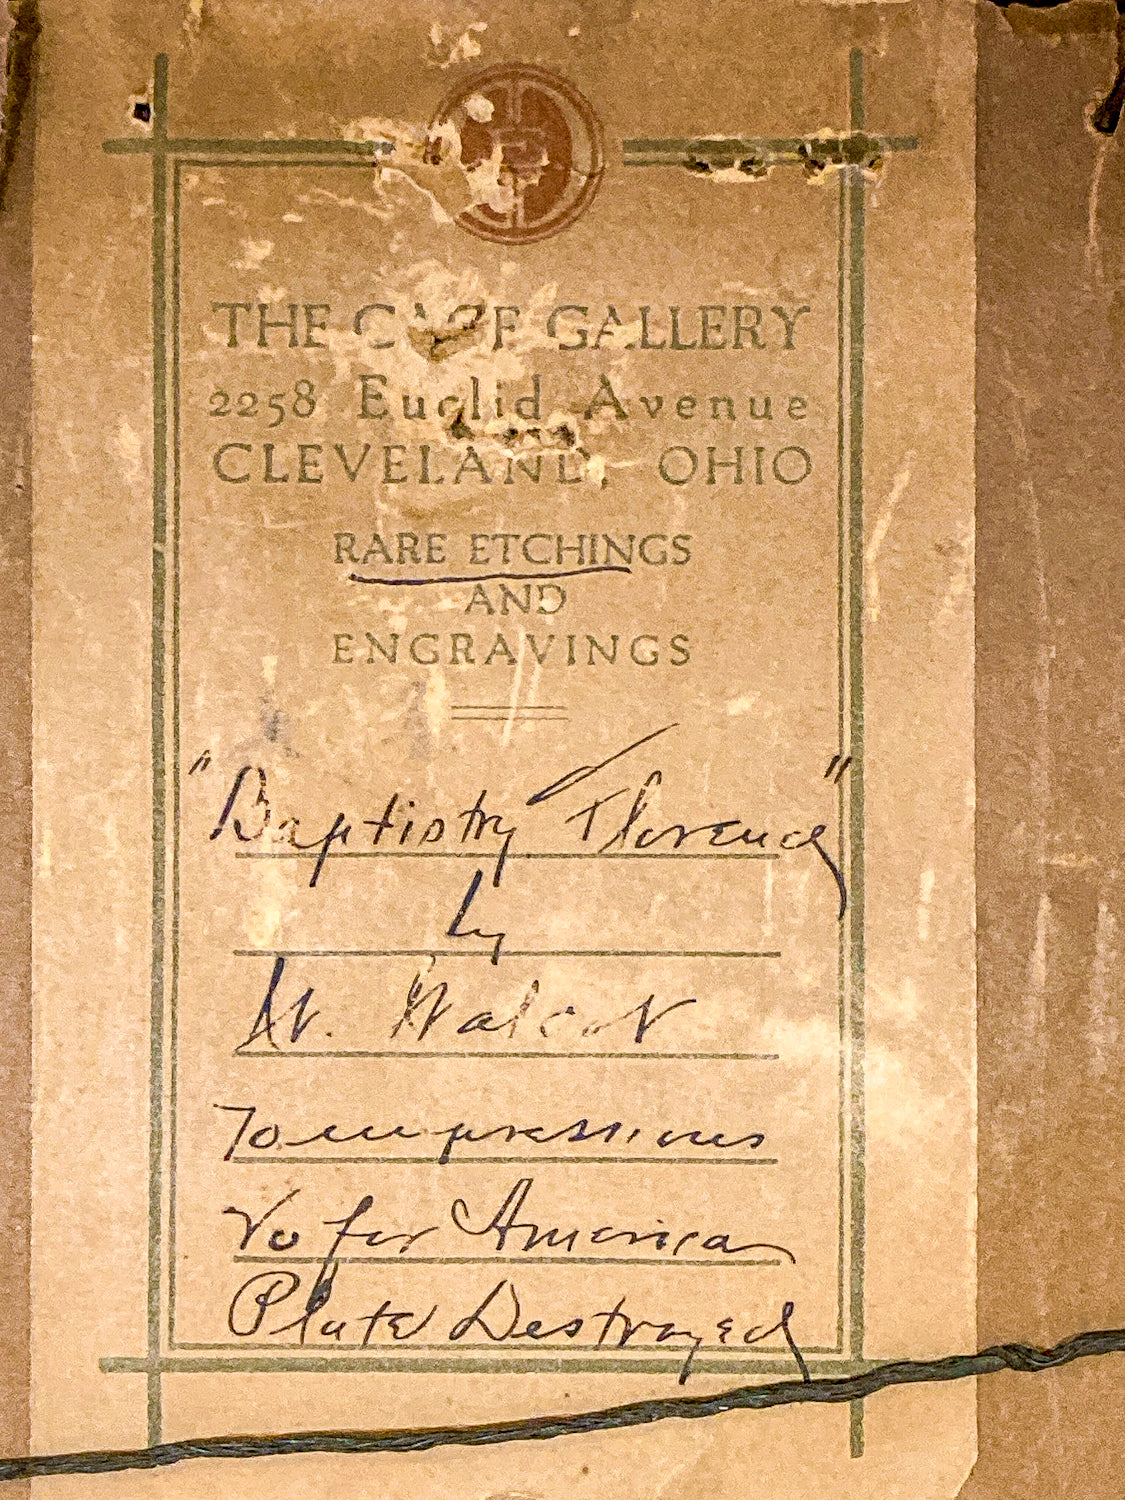 THE GAGE GALLERY
2258 Euclid Avenue
CLEVELAND, OHIO
RARE ETCHINGS
AND
ENGRAVINGS
"Baptistry Florence"
by
W. Walcot
70 impressions
for America
Plate Destroyed